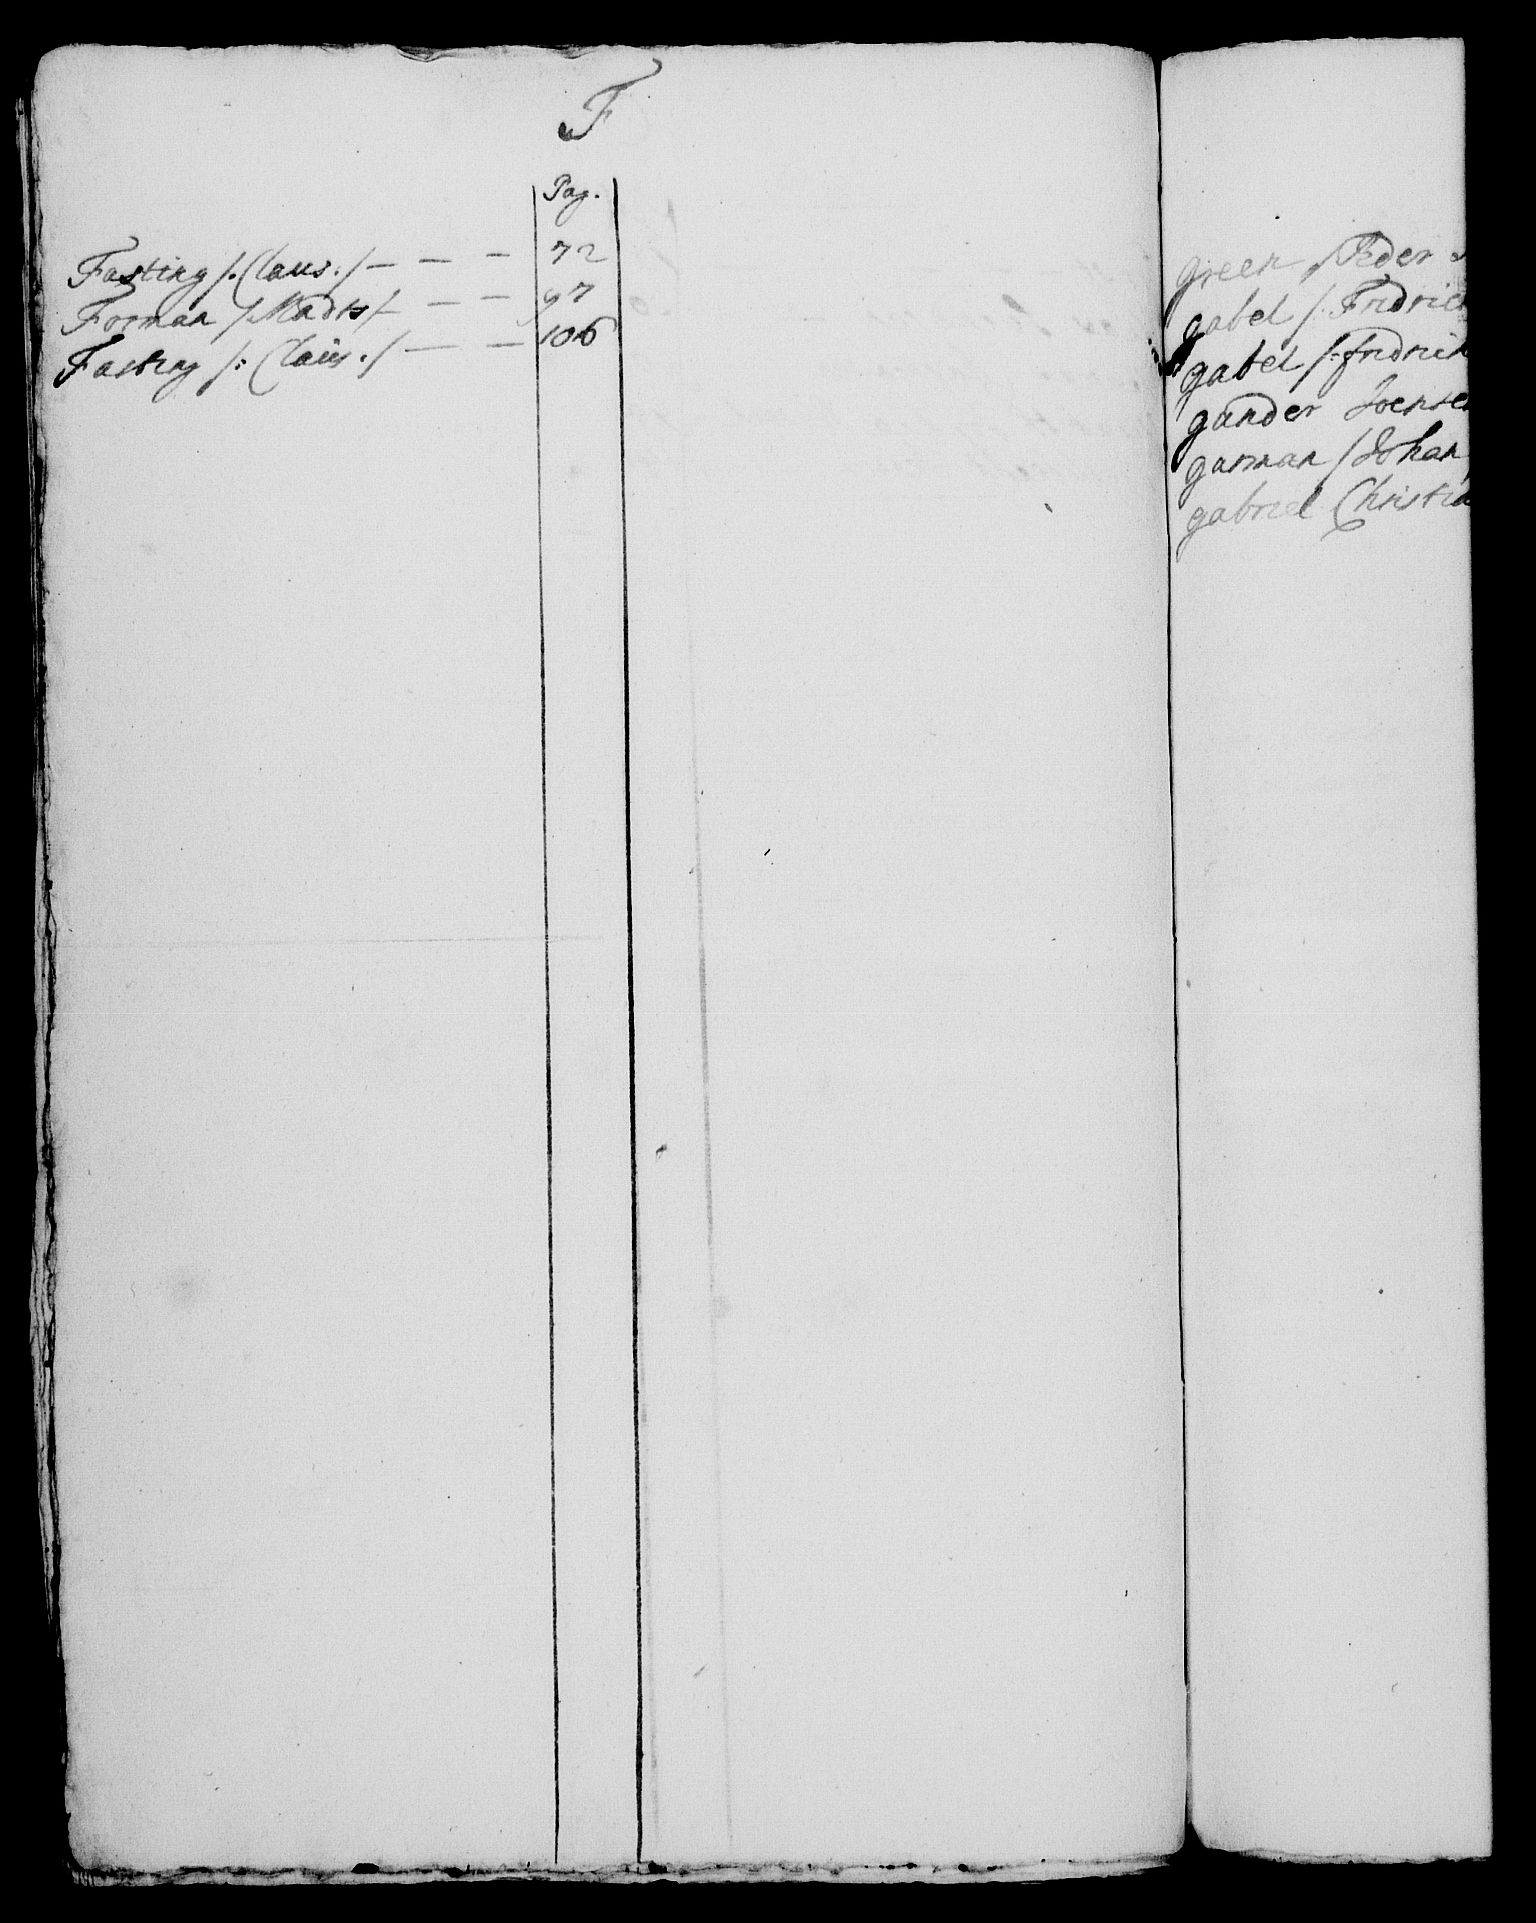 F
Pag.
Fasting /: Claus :/ — — — 72
Forman / Madts / — — 97
Fasting /: Claus :/ — — 106
green / Peder
gabel /: Fridrich
gabel /: fridrich
gunder Joensen
garman / Johan
gabriel Christia